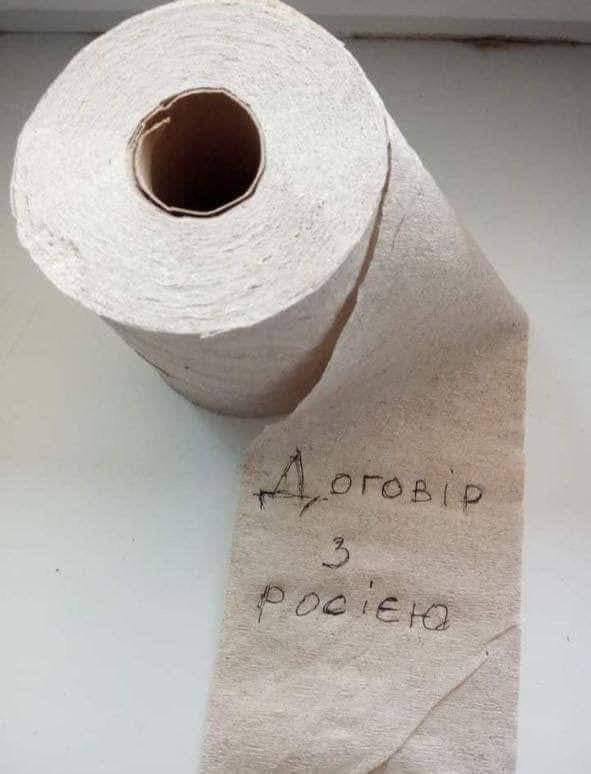 Договір
з
росією